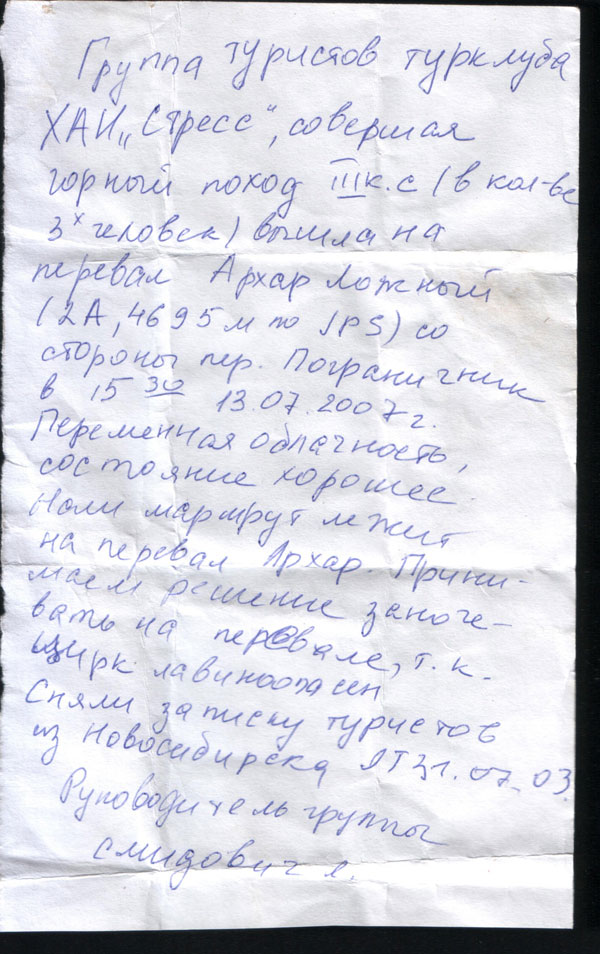 Группа туристов турклуба
ХАИ „Стресс", совершая
горный поход III к.с (в кол-ве
3х человек) вышла на
перевал Архар Ложный
(2А, 4695 м по JPS) со
стороны пер. Пограничник
в 15 30 13.07.2007 г.
Переменная облачность,
состояние хорошее.
маршрут лежит
на перевал Архар. Прини-
маем решение заноче-
вать на перевале, т.к.
цирк лавиноопасен
Сняли записку туристов
из Новосибирска 07.03
Руководитель группы
Смидович